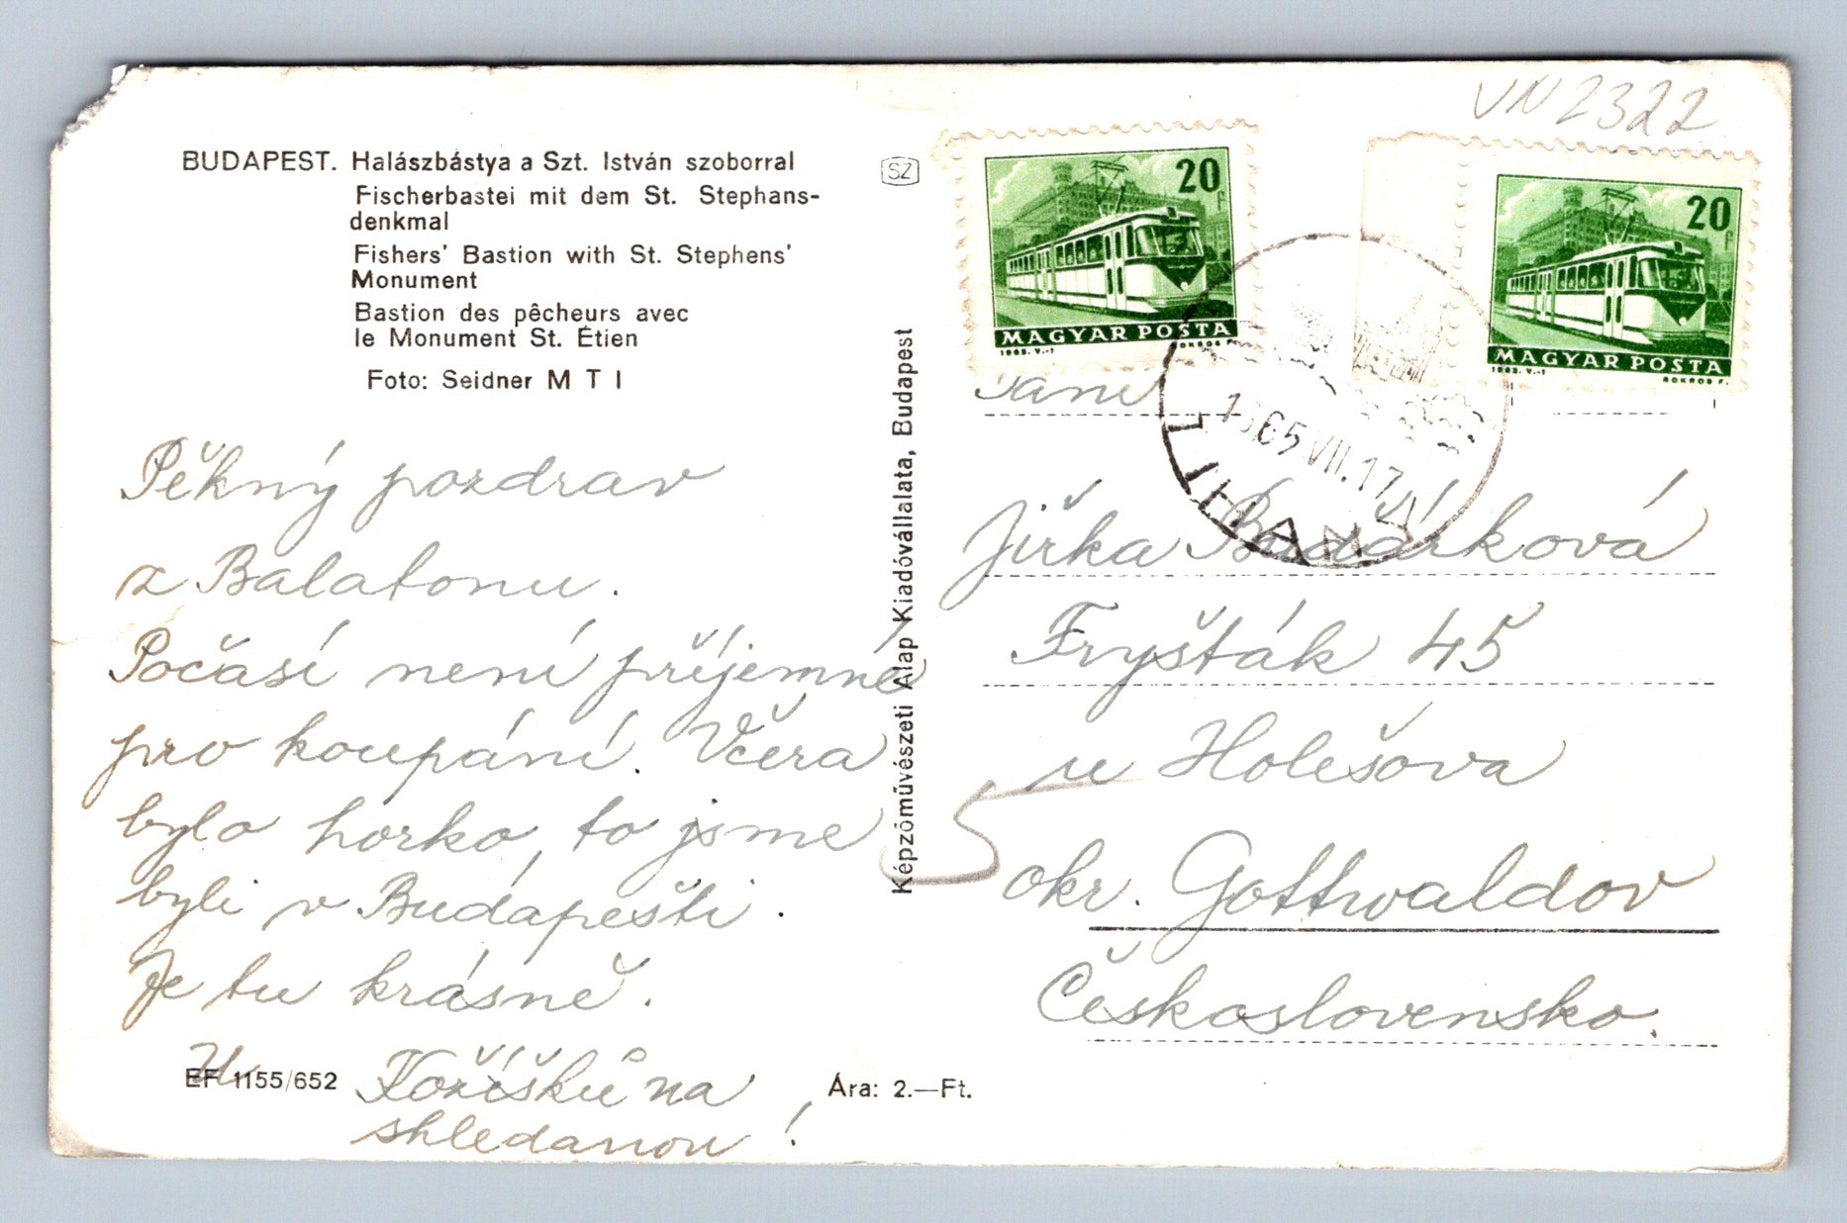 VN2322
BUDAPEST. Halászbástya a Szt. István szoborral
Fischerbastei mit dem St. Stephans-
denkmal
Fishers' Bastion with St. Stephens'
Monument
Bastion des pêcheurs avec
le Monument St. Étien
Foto: Seidner M T I
SZ
20 f
MAGYAR POSTA
1963. V.-1 BOKROS F.
20 f
MAGYAR POSTA
1963. V.-1 BOKROS F.
1965 VII. 17
TIHANY
Pěkný pozdrav
z Balatonu.
Počasí není příjemné
pro koupání. Včera
bylo horko, to jsme
byli v Budápešti.
Je tu krásně.
Koříšků na
shledanou!
EF 1155/652
Ára: 2.—Ft.
Képzőművészeti Alap Kiadóvállalata, Budapest
5
Paní
Jiřka
Fryšták 45
u Holešova
okr. Gottwaldov
Československo.